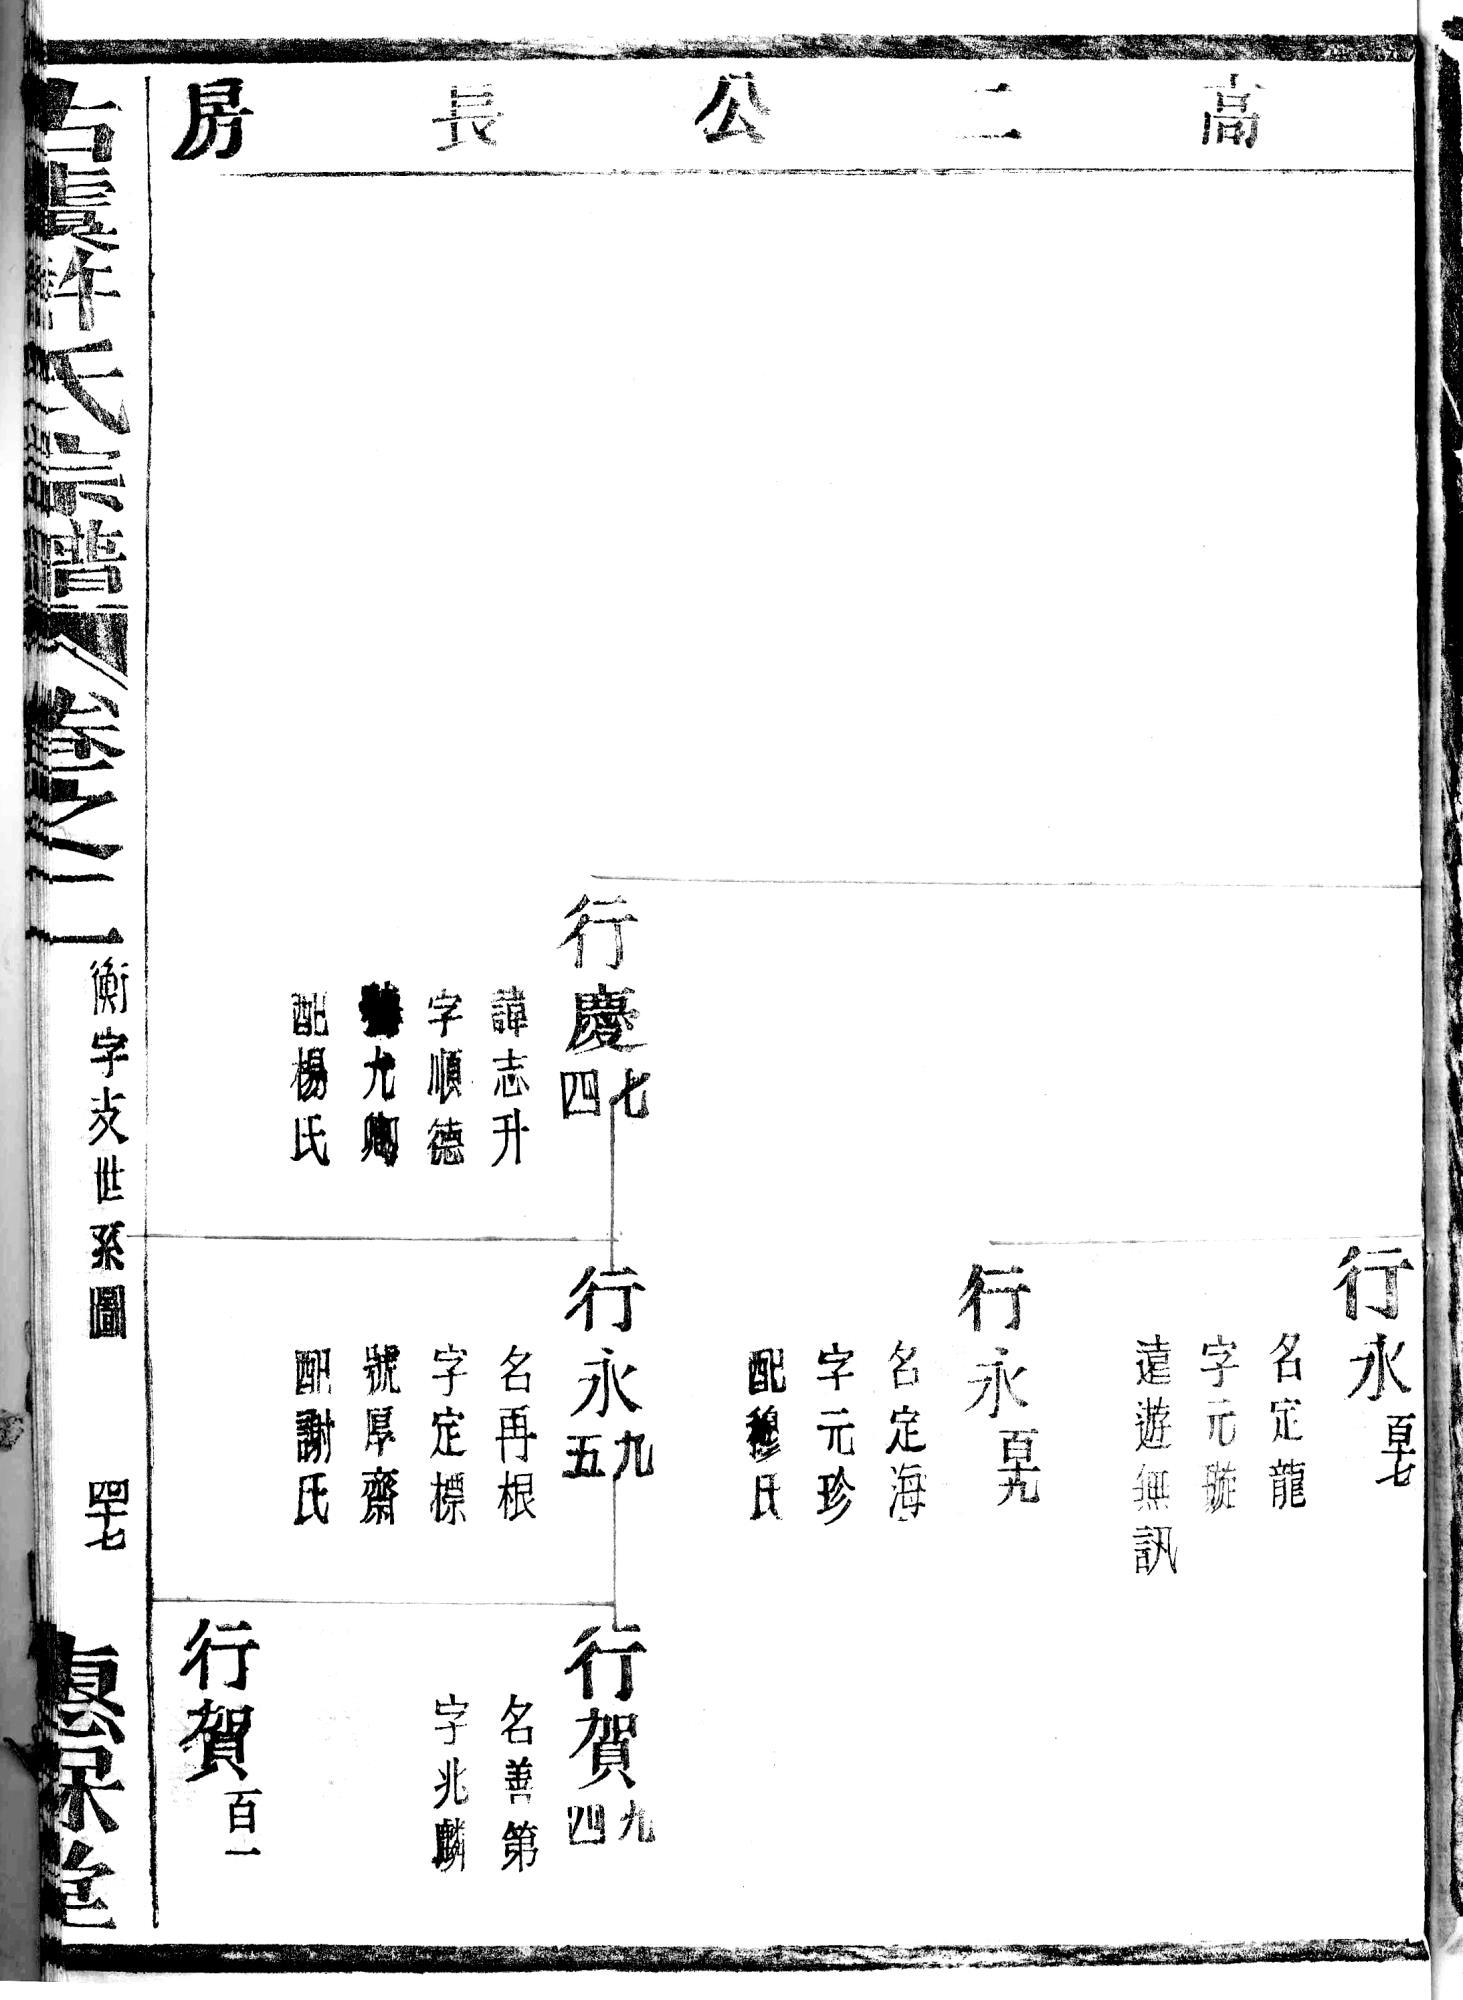 高二公長房
行慶七四
諱志升
字順德
允卿
配楊氏
行永百十七
名定龍
字元璇
遠遊無訊
行永百十九
名定海
字元珍
配穆氏
行永九五
名再根
字定標
號厚齋
配謝氏
行賀九四
名善第
字兆麟
行賀百一
古虞許氏宗譜
卷之二
衡字支世系圖
四十七
惇保堂